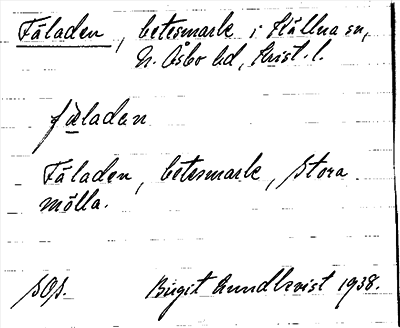 Fäladen, betesmark i Källna sn,
N. Åsbo hd, Krist. l.
fäladen
Fäladen, betesmark, Stora
mölla.
Birgit Lundkvist 1938.